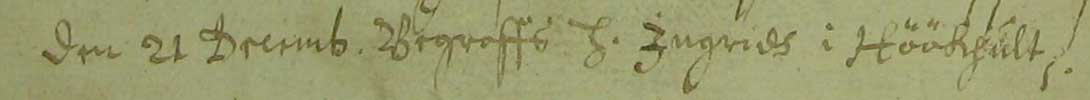 Den 21 Decemb. Begroffs h. Ingrids i Höökhult